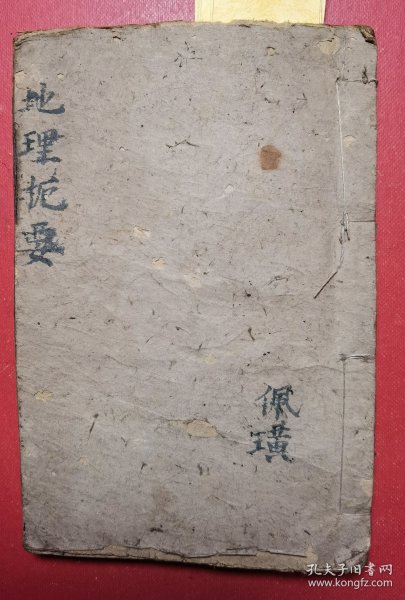 地理扼要
佩璜
孔夫子旧书网
www.kongfz.com